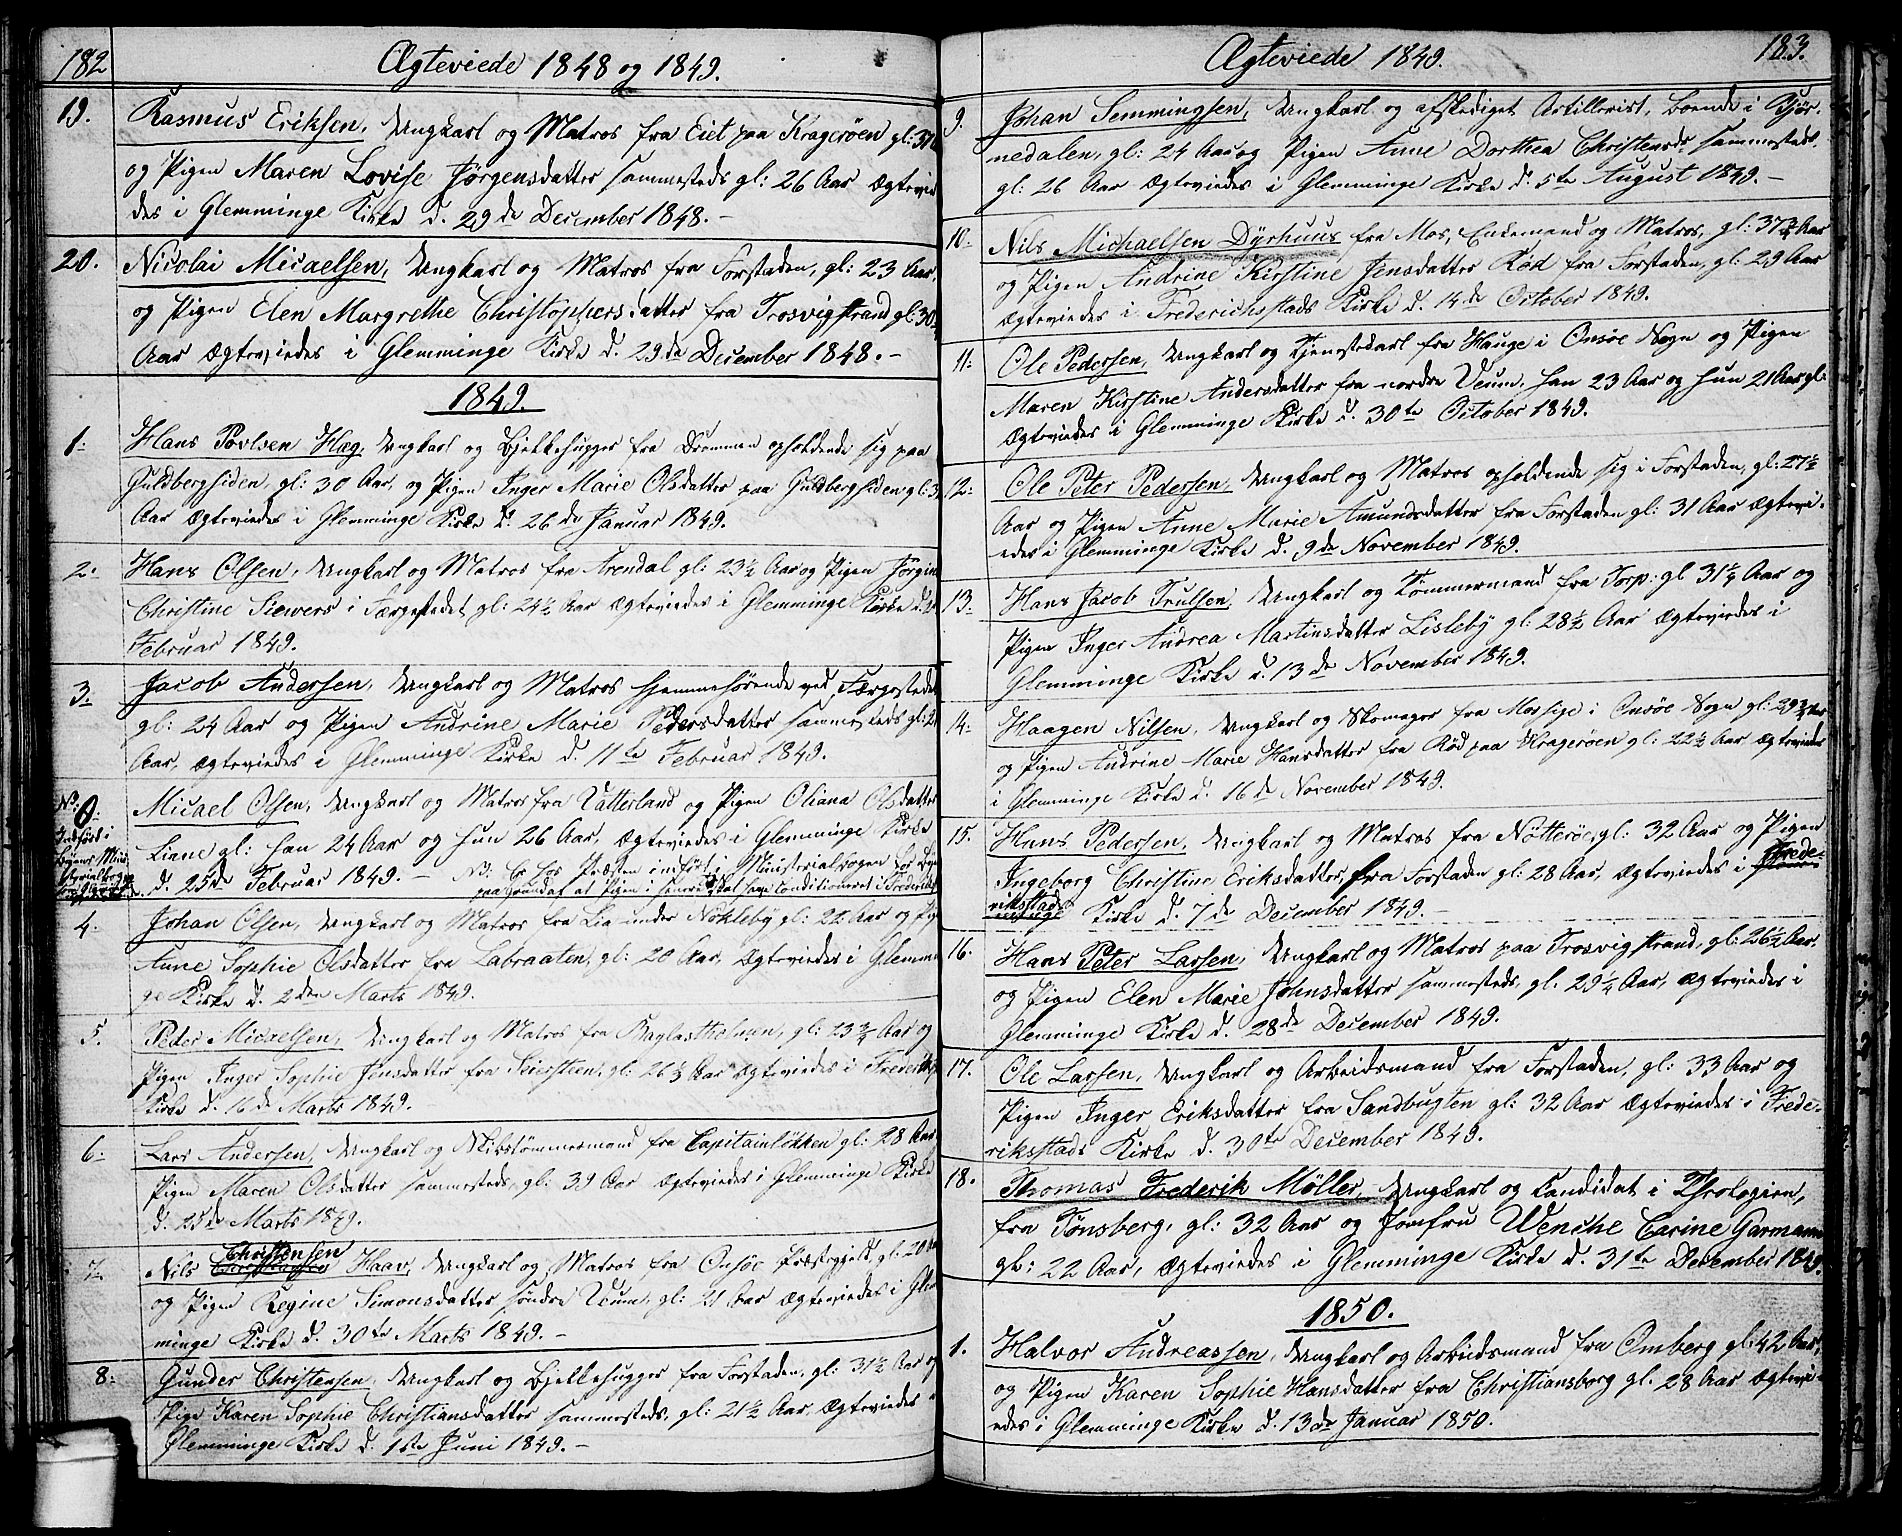 182
Ægteviede 1848 og 1849.
19. Rasmus Eriksen, Ungkarl og Matros fra Eiet paa Kragerøen gl: 37
og Pigen Maren Lovise Jørgensdatter sammesteds gl: 26 Aar Ægtevie
des i Glemminge Kirke d. 29de December 1848.-
20. Nicolai Micaelsen, Ungkarl og Matros fra Forstaden, gl: 23 Aar,
og Pigen Elen Margrethe Christophersdatter fra Trosvigstrand gl: 30
Aar Ægteviedes i Glemminge Kirke d. 29de December 1848.-
1849.
1: Hans Povlsen Hæg, Ungkarl og Bjelkehugger fra Drammen opholdende sig paa
Guldbergsiden, gl: 30 Aar, og Pigen Inger Marie Olsdatter paa Guldbergsiden gl: 3
Aar Ægteviedes i Glemminge Kirke d. 26de Januar 1849.
2: Hans Olsen, Ungkarl og Matros fra Arendal gl: 23½ Aar og Pigen Jørgin
Christine Siewers i Færgestedet gl: 24½ Aar Ægteviedes i Glemminge Kirke d.
Februar 1849.
3. Jacob Andersen, Ungkarl og Matros hjemmehørende ved Færgestedet
gl: 24 Aar og Pigen Andrine Marie Pedersdatter sammesteds gl: 2
Aar, Ægteviedes i Glemminge Kirke d. 11te Februar 1849.
No. 0: Micael Olsen, Ungkarl og Matros fra Vatterland og Pigen Oliana Olsdatter
Indført i
Byens Mini
sterialbog
Liane gl: han 24 Aar og hun 26 Aar, Ægteviedes i Glemminge Kirke
d. 25de Februar 1849.- NB: Er hos Præsten indført i Ministerialbogen for Byen
paa grund af at Pigen i Henseende skal have conditioneret i Frederiks
4. Johan Olsen, Ungkarl og Matros fra Lia under Nøkleby gl: 22 Aar og Pig
Anne Sophie Olsdatter fra Labraaten, gl: 20 Aar, Ægteviedes i Glemmin
ge Kirke d. 2den Marts 1849.
5. Peder Micaelsen, Ungkarl og Matros fra gl: 23¾ Aar og
Pigen Inger Sophie Jensdatter fra Seiersteen, gl: 26½ Aar Ægteviedes i Frederiks
Kirke d. 16de Marts 1849.
6: Lars Andersen, Ungkarl og Skibstømmermand fra Capitainløkken gl: 28 Aar
Pigen Maren Olsdatter sammesteds, gl: 39 Aar Ægteviedes i Glemminge Kirke
d. 25de Marts 1849.
7. Nils Christensen Haav, Ungkarl og Matros fra Onsøe Præstegjeld, gl: 20 Aar
og Pigen Regine Simonsdatter søndre Veum, gl: 21 Aar Ægteviedes i Glem
minge Kirke d. 30te Marts 1849.-
8: Gunder Christensen, Ungkarl og Bjelkehugger fra Forstaden, gl: 31½ Aar og
Pige Karen Sophie Christiansdatter sammesteds, gl: 21½ Aar, Ægteviedes i
Glemminge Kirke d. 1ste Juni 1849.-
Ægteviede 1849. 183.
9. Johan Semmingsen, Ungkarl og afskediget Artillerist, boende i Bjør-
nedalen, gl: 24 Aar og Pigen Anne Dorthea Christensdr sammesteds.
gl: 26 Aar Ægteviedes i Glemminge Kirke d. 5te August 1849.-
10. Nils Michaelsen Dyrhuus fra Mos, Enkemand og Matros, gl: 37¾ Aar
og Pigen Andrine Kirstine Jensdatter Rød fra Forstaden, gl: 29 Aar
Ægteviedes i Frederichsstads Kirke d. 14de October 1849.
11: Ole Pedersen, Ungkarl og Tjenestekarl fra Hauge i Onsøe Sogn og Pigen
Maren Kirstine Andersdatter fra nordre Veum, han 23 Aar og hun 21 Aar gl:
Ægteviedes i Glemminge Kirke d. 30te October 1849.
12: Ole Peter Pedersen, Ungkarl og Matros opholdende sig i Forstaden, gl: 27½
Aar og Pigen Anne Marie Amundsdatter fra Forstaden gl: 31 Aar Ægtevi-
edes i Glemminge Kirke d. 9de November 1849.
13: Hans Jacob Trulsen, Ungkarl og Tømmermand fra Torp: gl 31½ Aar og
Pigen Inger Andrea Martinsdatter Lisleby gl: 28½ Aar Ægteviedes i
Glemminge Kirke d. 13de November 1849.
14: Haagen Nilsen, Ungkarl og Skomager fra Mossige i Onsøe Sogn gl: 29¾ Aar
og Pigen Andrine Marie Hansdatter fra Rød paa Kragerøen gl: 22½ Aar Ægteviedes
i Glemminge Kirke d. 16de November 1849.
15. Hans Pedersen, Ungkarl og Matros fra Nøtterøe, gl: 32 Aar og Pigen
Ingeborg Christine Eriksdatter, fra Forstaden gl: 28 Aar, Ægteviedes i Frede-
riksstads Kirke d. 7de December 1849.-
16. Hans Peter Larsen, Ungkarl og Matros paa Trosvigstrand, gl: 26½ Aar,
og Pigen Elen Marie Johnsdatter sammesteds, gl. 29¼ Aar, Ægteviedes i
Glemminge Kirke d. 28de December 1849.
17. Ole Larsen, Ungkarl og Arbeidsmand fra Forstaden, gl: 33 Aar og
Pigen Inger Eriksdatter fra Sandbugten gl: 32 Aar Ægteviedes i Frede-
riksstads Kirke d. 30te December 1849.
18. Thomas Frederik Møller, Ungkarl og Candidat i Theologien,
fra Tønsberg, gl: 32 Aar og Jomfru Wenche Carine Garmann
gl: 22 Aar, Ægteviedes i Glemminge Kirke d. 31te December 1849.
1850.
1. Halvor Andreassen, Ungkarl og Arbeidsmand fra Omberg gl: 42 Aar,
og Pigen Karen Sophie Hansdatter fra Christiansborg gl: 28 Aar Ægtevi-
edes i Glemminge Kirke d. 13de Januar 1850.